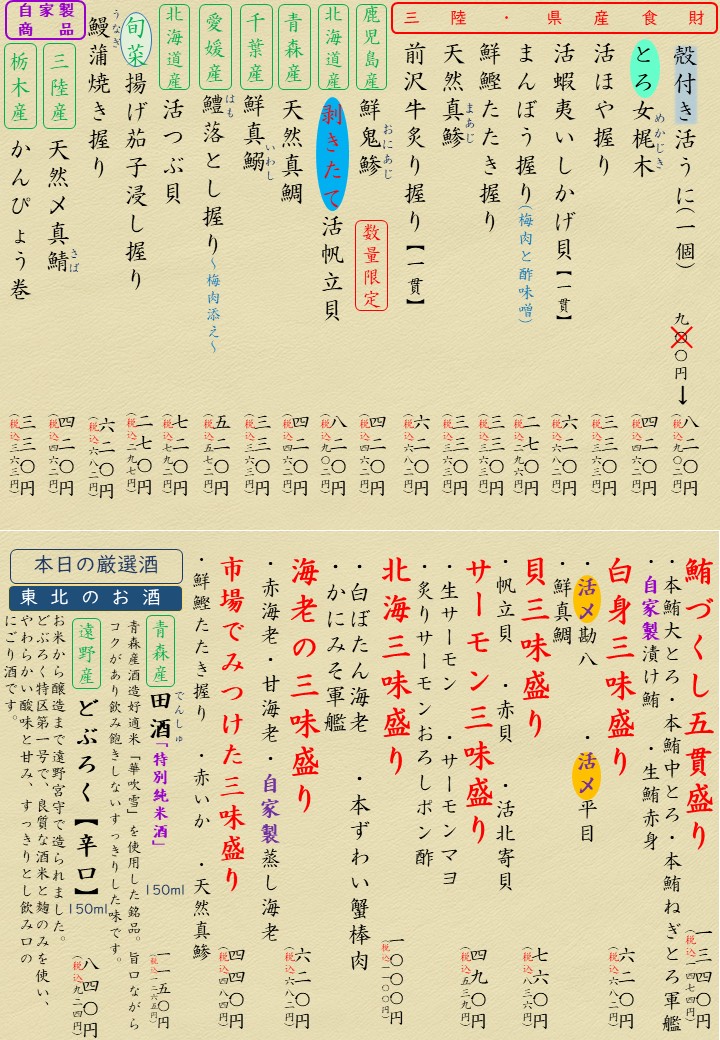 三陸・県産食財
殻付き活うに(一個) 九〇〇円→八二〇円(税込九〇二円)
とろ女梶木 めかじき 四二〇円(税込四六二円)
活ほや握り 三三〇円(税込三六三円)
活蝦夷いしかげ貝【一貫】 六二〇円(税込六八二円)
まんぼう握り(梅肉と酢味噌) 二七〇円(税込二九七円)
鮮鰹たたき握り 三三〇円(税込三六三円)
天然真鯵 まあじ 三三〇円(税込三六三円)
前沢牛炙り握り【一貫】 六二〇円(税込六八二円)
鹿児島産 鮮鬼鯵 おにあじ 数量限定 四二〇円(税込四六二円)
北海道産 剥きたて 活帆立貝 八二〇円(税込九〇二円)
青森産 天然真鯛 四二〇円(税込四六二円)
千葉産 鮮真鰯 いわし 三三〇円(税込三六三円)
愛媛産 鱧落とし握り はも ～梅肉添え～ 五二〇円(税込五七二円)
北海道産 活つぶ貝 七二〇円(税込七九二円)
旬菜 揚げ茄子浸し握り 二七〇円(税込二九七円)
鰻蒲焼き握り うなぎ 六二〇円(税込六八二円)
自家製商品
三陸産 天然〆真鯖 さば 四二〇円(税込四六二円)
栃木産 かんぴょう巻 三三〇円(税込三六三円)
鮪づくし五貫盛り 一三四〇円(税込一四七四円)
・本鮪大とろ・本鮪中とろ・本鮪ねぎとろ軍艦
・自家製漬け鮪 ・生鮪赤身
白身三味盛り 六二〇円(税込六八二円)
・活〆勘八 ・活〆平目
・鮮真鯛
貝三味盛り 七六〇円(税込八三六円)
・帆立貝 ・赤貝 ・活北寄貝
サーモン三味盛り 四九〇円(税込五三九円)
・生サーモン ・サーモンマヨ
・炙りサーモンおろしポン酢
北海三味盛り 一〇〇〇円(税込一一〇〇円)
・白ぼたん海老 ・本ずわい蟹棒肉
・かにみそ軍艦
海老の三味盛り 六二〇円(税込六八二円)
・赤海老・甘海老・自家製蒸し海老
市場でみつけた三味盛り 四四〇円(税込四八四円)
・鮮鰹たたき握り ・赤いか ・天然真鯵
本日の厳選酒
東北のお酒
青森産 田酒 でんしゅ 「特別純米酒」 150ml 一一五〇円(税込一二六五円)
青森産酒造好適米「華吹雪」を使用した銘品。旨口ながら
コクがあり飲み飽きしないすっきりした味です。
遠野産 どぶろく【辛口】 150ml 八四〇円(税込九二四円)
お米から醸造まで遠野宮守で造られました。
どぶろく特区第一号で、良質な酒米と麹のみを使い、
やわらかい酸味と甘み、すっきりとし飲み口の
にごり酒です。